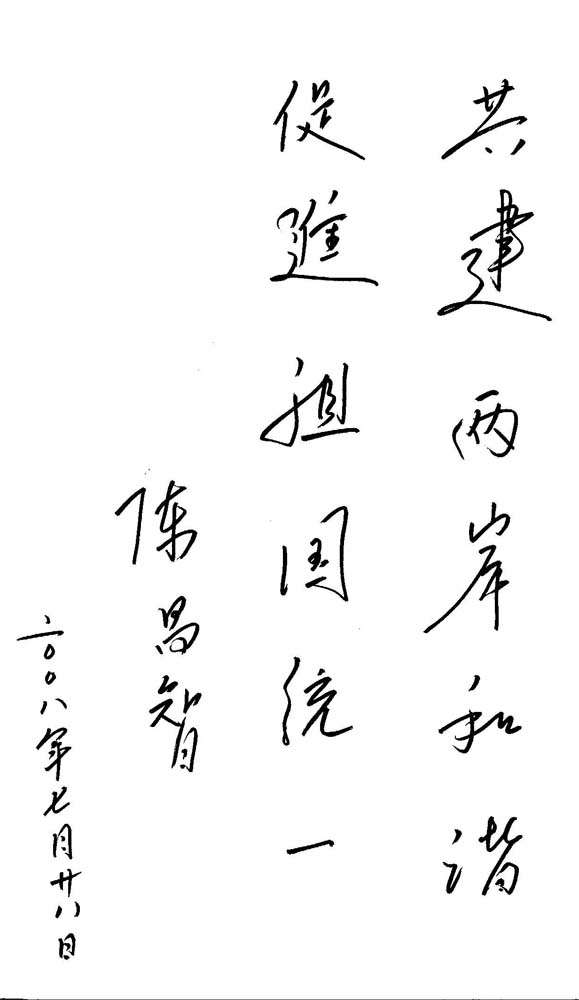 共建两岸和谐
促進祖国统一
陈昌智
二〇〇八年七月廿八日